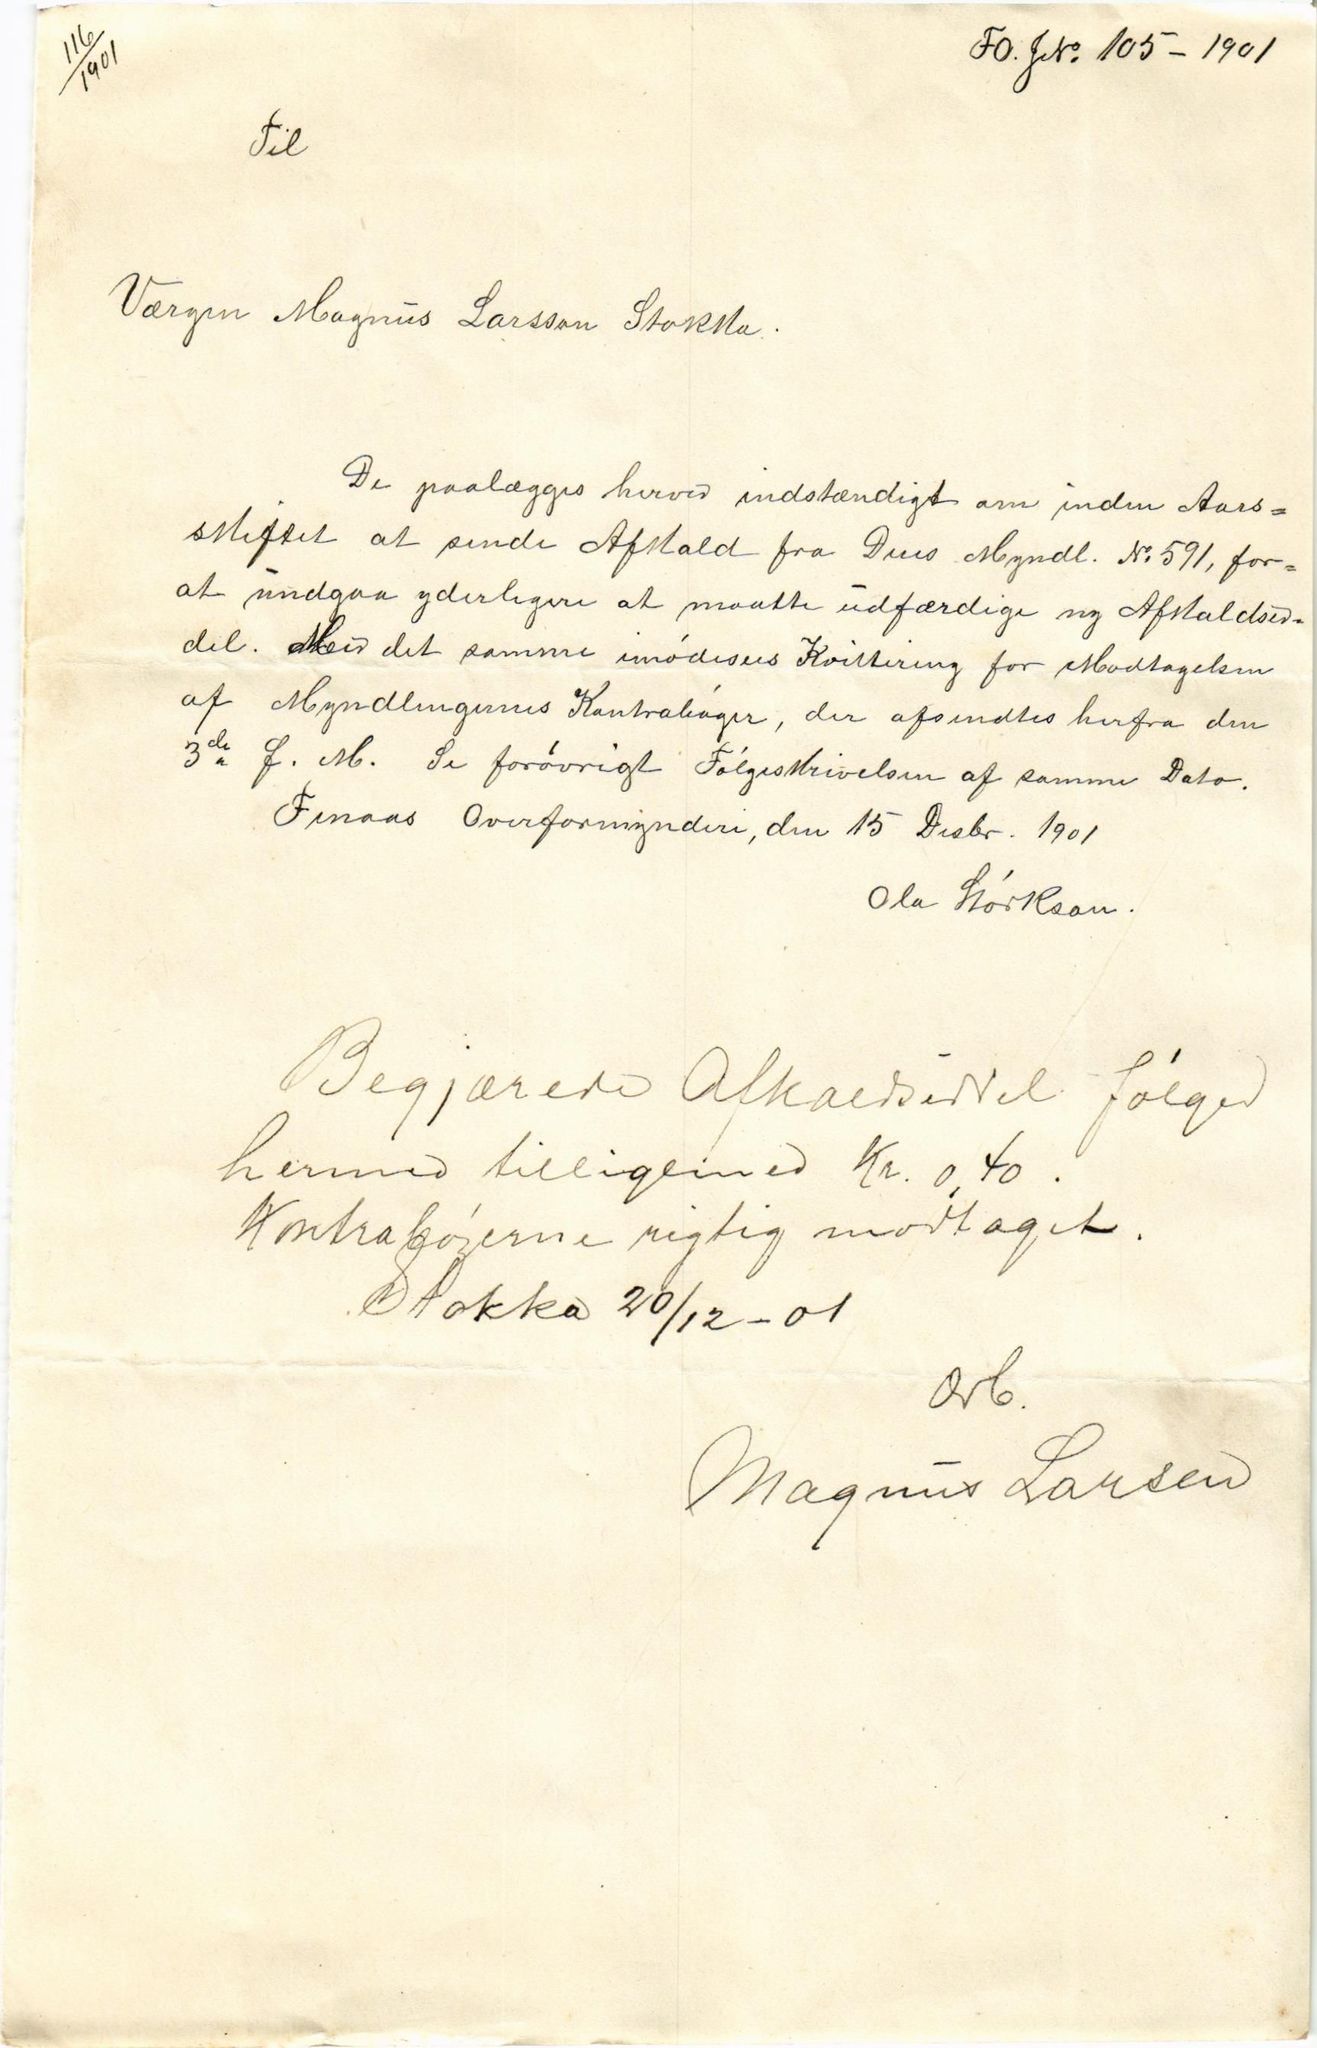 116/1901
FO. JNo. 105 – 1901
Til
Værgen Magnus Larsson Stokka.
De paalægges herved indstændigt om inden Aars=
skiftet at sende Afkald fra Deres Myndl. No. 591, for=
at undgaa yderligere at maatte udfærdige ny Afkaldsed=
del. Med det samme imødesees Kvittering for Modtagelsen
af Myndlingernes Kontrabøger, der afsendtes herfra den
3de f. M. Se forøvrigt Følgeskrivelsen af samme Dato.
Finaas Overformynderi, den 15 Desbr. 1901
Ola Størkson.
Begjærede Afkaldseddel følged
hermed tilligemed Kr. 0,40.
Kontrabøgerne rigtig modtaget.
Stokka 20/12 – 01
Ærb.
Magnus Larsen